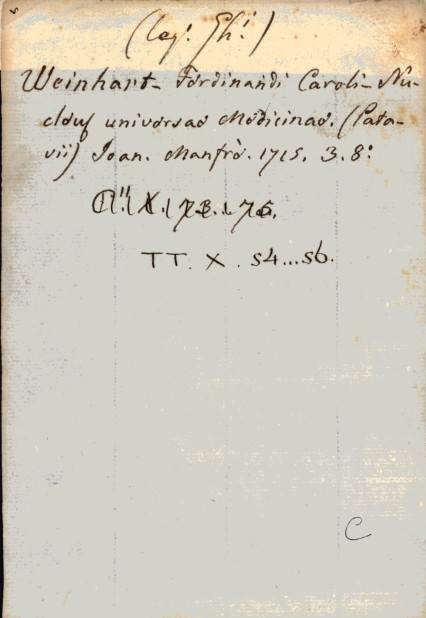 (leg. Gh.)
Weinhart- Ferdinandi Caroli- Nu-
cleus universae Medicinae. (Pata-
vii) Joan. Manfrè. 1715. 3. 8:
X. 73. 75.
TT. X. 54...56.
C